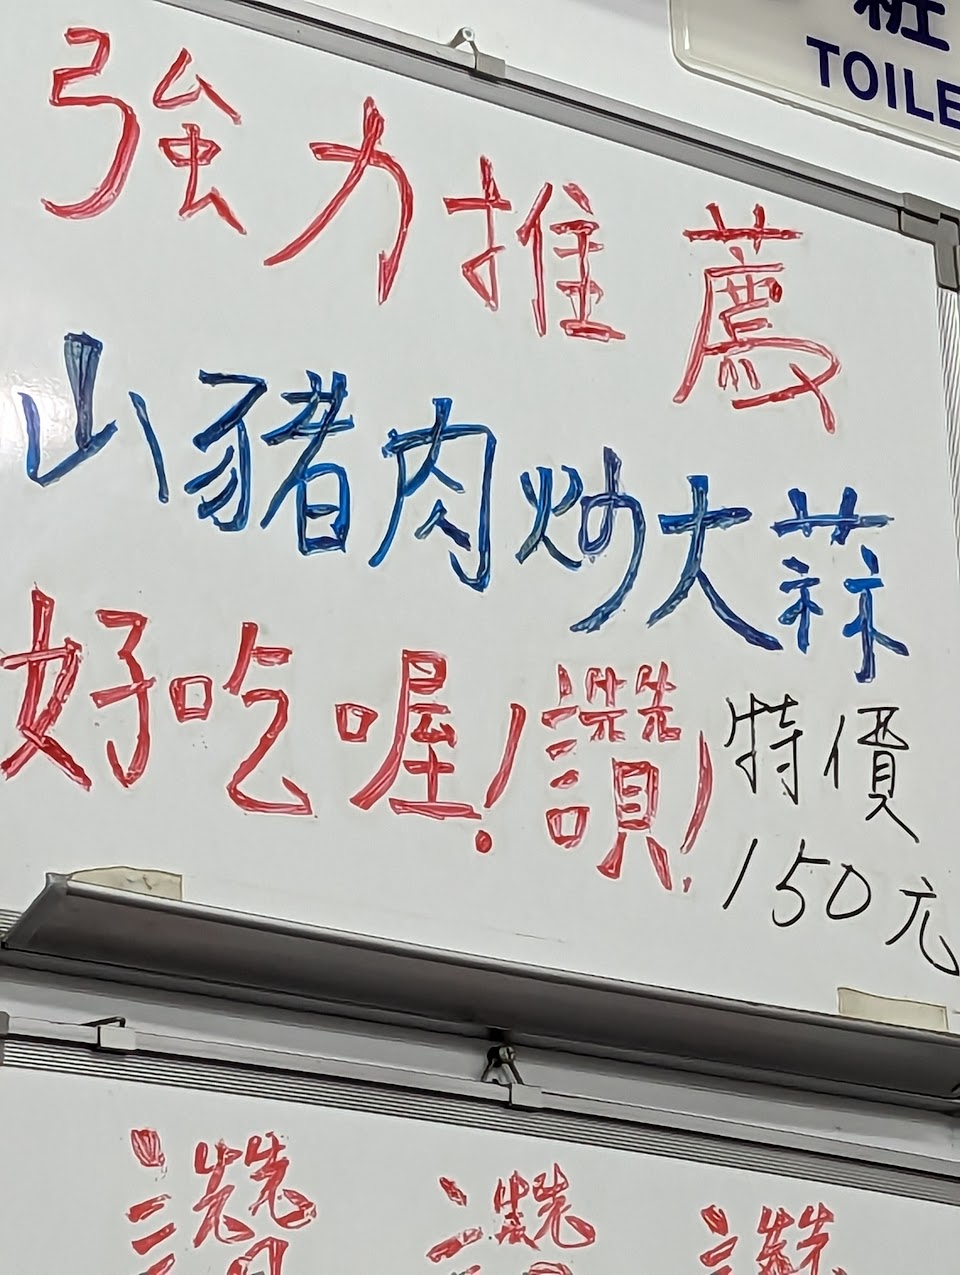 強力推薦
山豬肉炒大蒜
好吃喔!讚!
特價
150元
TOILE
讚 讚 讚